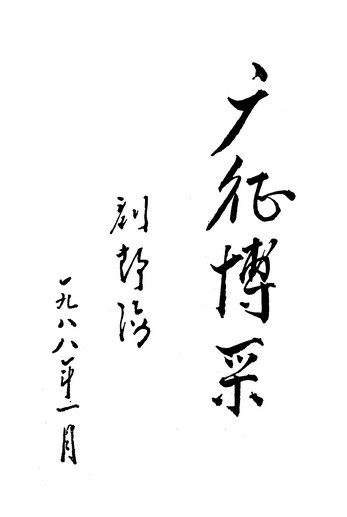 广征博采
刘
一九八八年一月